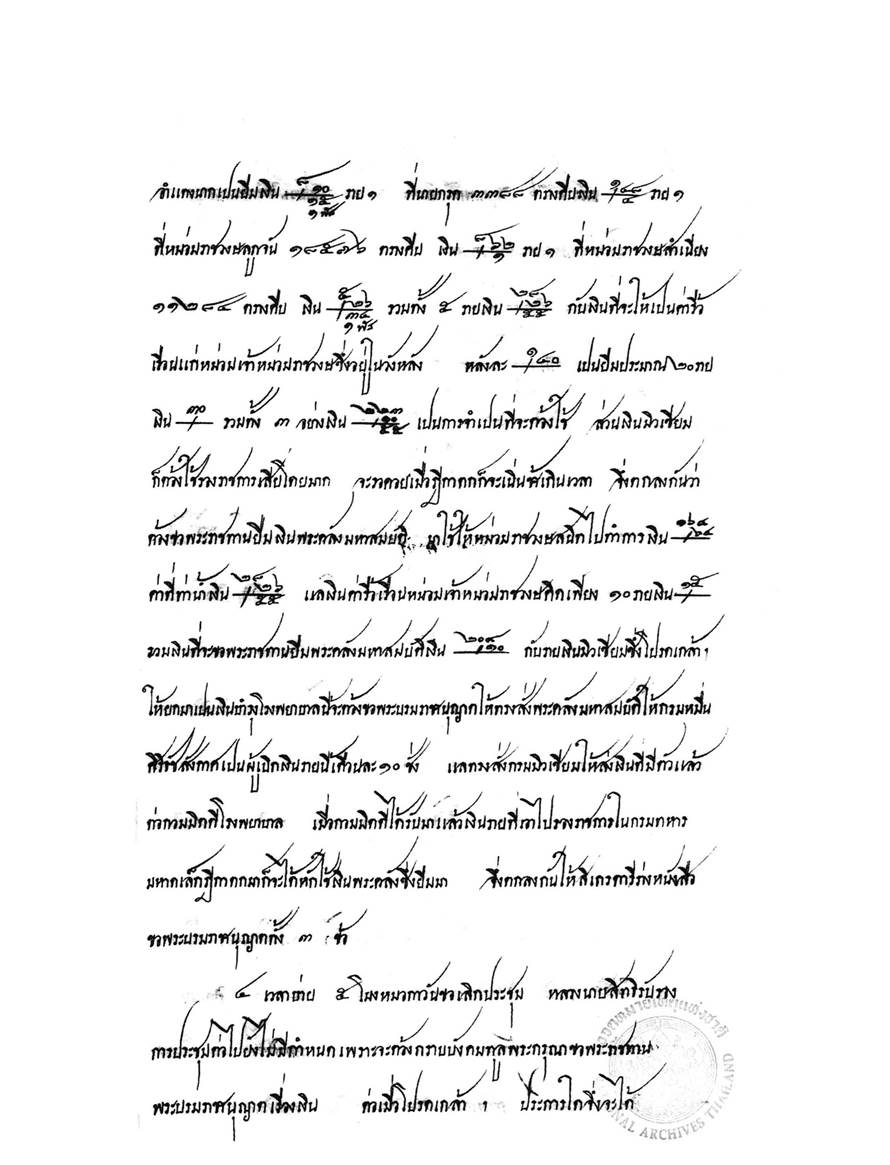 อำแดงนากเปนปีมเงิน ราย ๑ ที่นายกรุด ๓๓๙๘ ตารางศีบเงิน ราย ๑
ที่หม่อมราชวงษลูกจัน ตารางศีบ เงิน ราย ๑ ที่หม่อมราชวงษสำเนียง
๑๑๒๘๔ ตารางศีบ เงิน รวมทั้ง ๕ รายเงิน กับเงินที่จะให้เปนค่ารื้อ
เรือนแก่หม่อมเจ้าหม่อมราชวงษซึ่งอยู่ในวังหลัง หลังละ เปนปีมประมาณ ๒๐ ราย
เงิน รวมทั้ง ๓ อย่างเงิน เปนการจำเปนที่จะต้องใช้ ส่วนเงินมิวเซียม
ก็ต้องใช้รองราชการเสียโดยมาก จะรอคอยเมื่อฎีกาตกก็จะเนิ่นช้าเกินเวลา จึ่งตกลงกันว่า
ต้องขอพระราชทานยืมเงินพระคลังมหาสมบัติ มาใช้ให้หม่อมราชวงษสนิทไปทำการเงิน
ค่าที่ท่าน้ำเงิน แลเงินค่ารื้อเรือนหม่อมเจ้าหม่อมราชวงษคิดเพียง ๑๐ รายเงิน
รวมเงินที่จะขอพระราชทานยืมพระคลังมหาสมบัติเงิน กับรายเงินมิวเซียมซึ่งโปรดเกล้าฯ
ให้ยกมาเปนเงินบำรุงโรงพยาบาลนี้จะต้องขอพระบรมราชานุญาตให้ทรงสั่งพระคลังมหาสมบัติให้กรมหมื่น
ศิริธัชสังกาศเปนผู้เบิกเงินรายนี้เดือนละ ๑๐ ชั่ง แลทรงสั่งกรมมิวเซียมให้ส่งเงินที่มีตัวแล้ว
ต่อคอมมิตตีโรงพยาบาล เมื่อคอมมิตตีได้รับมาแล้วเงินรายที่เอาไปรองราชการในกรมทหาร
มหาดเล็กฎีกาตกมาก็จะได้หักใช้เงินพระคลังซึ่งยืมมา จึ่งตกลงกันให้สิเกรตารีร่างหนังสือ
ขอพระบรมราชานุญาตทั้ง ๓ ข้อ
๔ เวลาบ่าย ๕ โมงหมอกาวันขอเลิกประชุม หลวงนายสิทธิรับรอง
การประชุมต่อไปยังไม่มีกำหนด เพราะจะต้องกราบบังคมทูลพระกรุณาขอพระราชทาน
พระบรมราชานุญาตเรื่องเงิน ต่อเมื่อโปรดเกล้า ฯ ประการใดจึ่งจะได้
หอจดหมายเหตุแห่งชาติ
NATIONAL ARCHIVES THAILAND